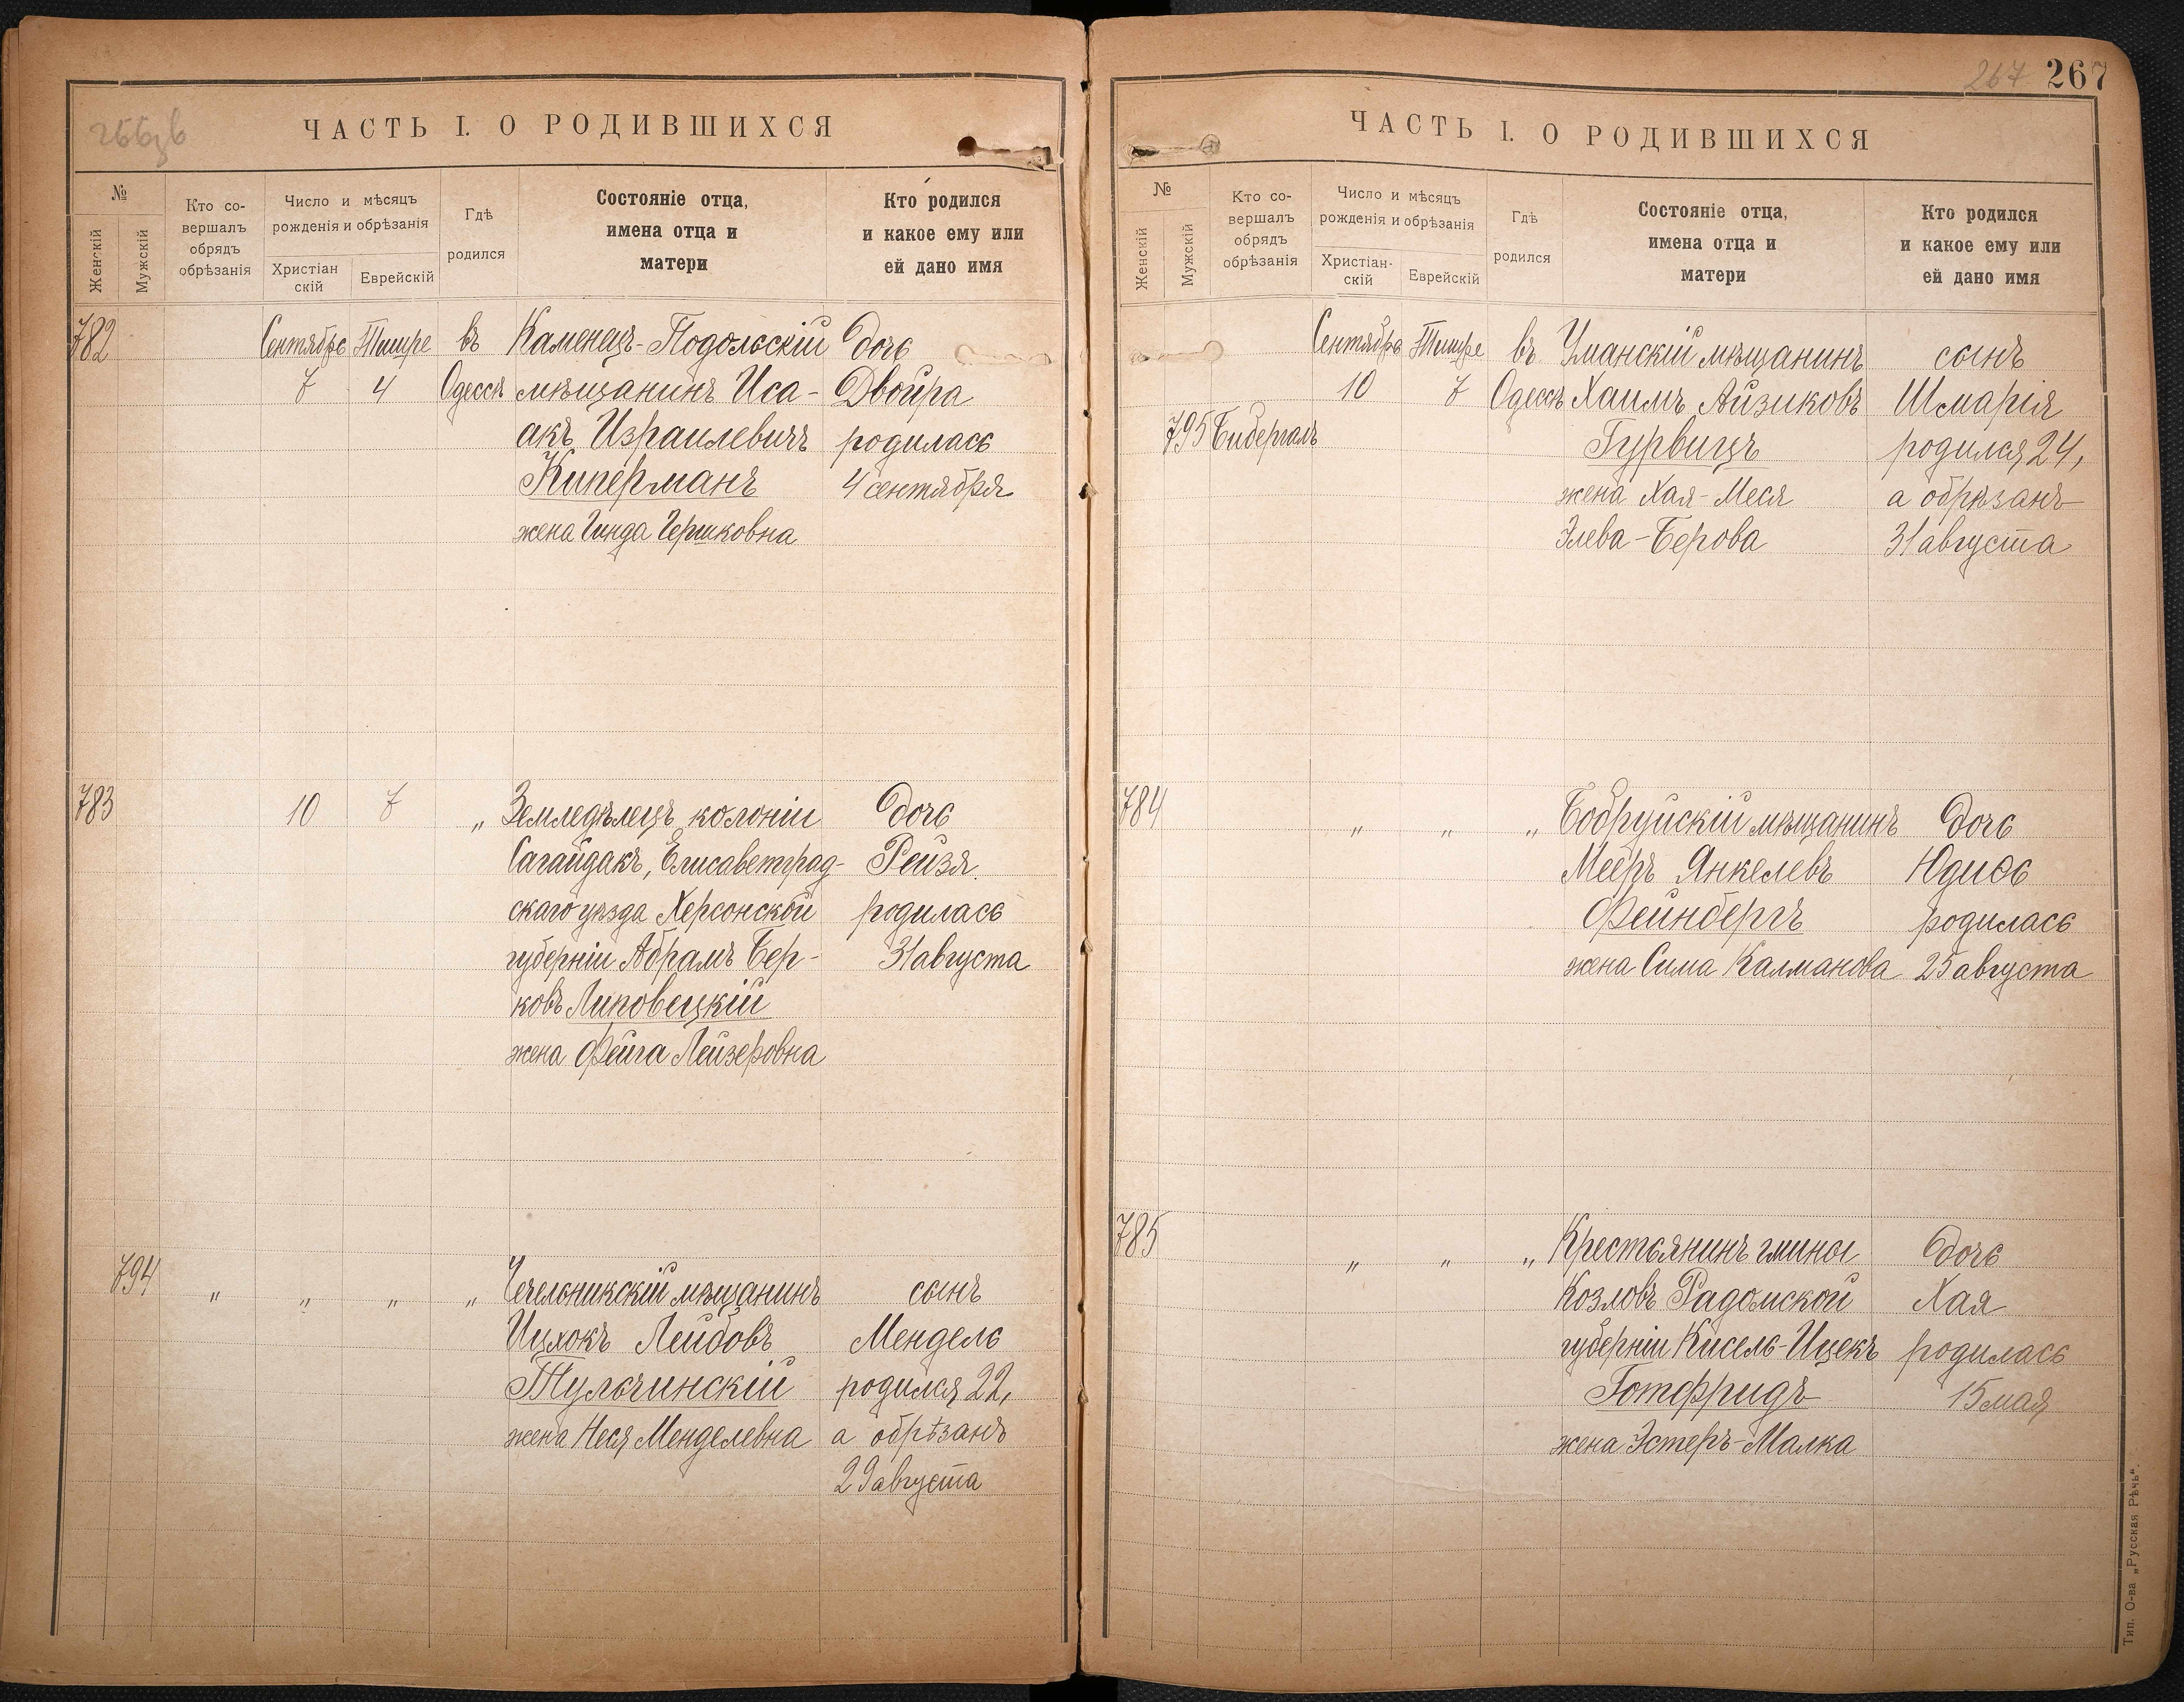 ЧАСТЬ I. О РОДИВШИХСЯ
№
Женскій
Мужскій
Кто со-
вершалъ
обрядъ
обрѣзанія
Число и мѣсяцъ
рожденія и обрѣзанія
Христіан
скій
Еврейскій
Гдѣ
родился
Состояніе отца,
имена отца и
матери
Кто родился
и какое ему или
ей дано имя
782 Сентябрь Тишре въ Каменецъ-Подольскій Дочь
7 4 Одессѣ мѣщанинъ Иса- Двойра
акъ Израилевичъ родилась
Киперманъ 4 сентября
жена Гинда Гершковна
783 10 7 „ Земледѣлецъ колоніи Дочь
Сагайдакъ, Елисаветград- Рейзя
скаго уѣзда Херсонской родилась
губерніи Абрамъ Бер- 31 августа
ковъ Липовецкій
жена Фейга Лейзеровна
794 „ „ „ „ Чечельникскій мѣщанинъ сынъ
Ицхокъ Лейбовъ Мендель
Тульчинскій родился 22,
жена Неся Менделевна а обрѣзанъ
29 августа
267 267
ЧАСТЬ I. О РОДИВШИХСЯ
№
Женскій
Мужскій
Кто со-
вершалъ
обрядъ
обрѣзанія
Число и мѣсяцъ
рожденія и обрѣзанія
Христіан-
скій
Еврейскій
Гдѣ
родился
Состояніе отца,
имена отца и
матери
Кто родился
и какое ему или
ей дано имя
Сентябрь Тишре въ Уманскій мѣщанинъ сынъ
10 7 Одессѣ Хаимъ Айзиковъ Шмарія
795 Бибергалъ Гурвицъ родился 24,
жена Хая-Меся а обрѣзанъ
Элева-Берова 31 августа
784 „ „ „ Бобруйскій мѣщанинъ Дочь
Мееръ Янкелевъ Юдиѳь
Фейнбергъ родилась
жена Сима Калманова 25 августа
785 „ „ „ Крестьянинъ гмины Дочь
Козловъ Радомской Хая
губерніи Кисель-Ицекъ родилась
Готфридъ 15 мая
жена Эстеръ-Малка
Тип. О-ва „Русская Рѣчь“.